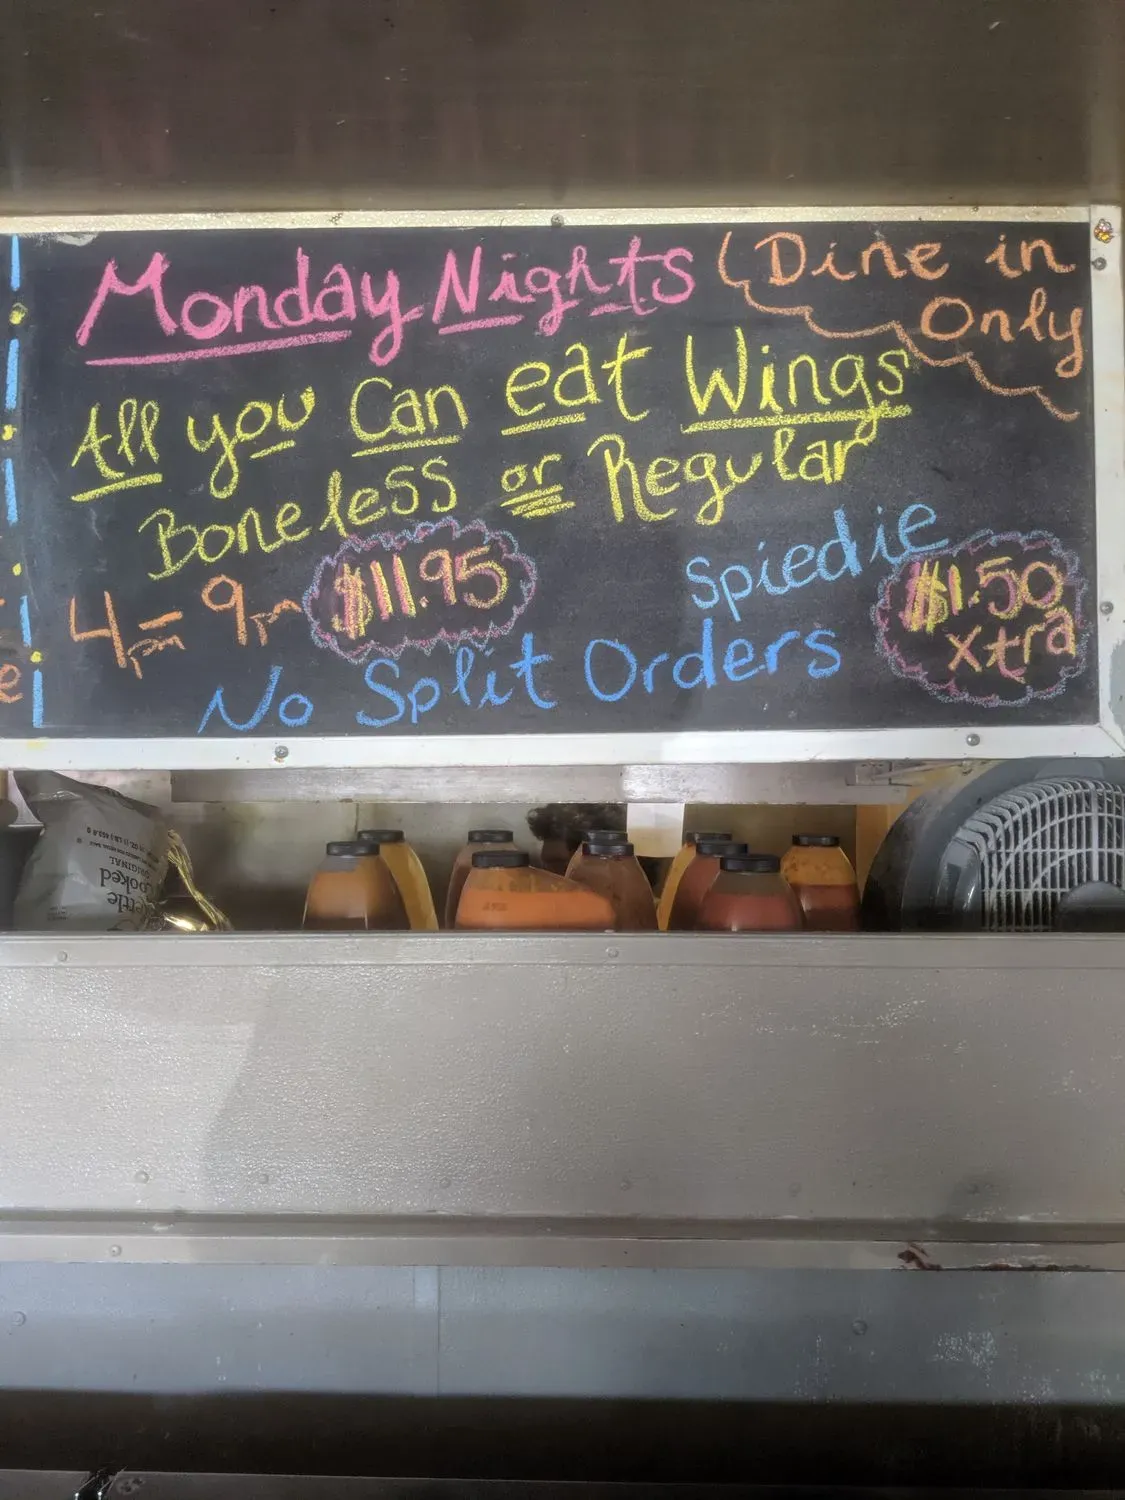 Monday Nights
(Dine in
Only
All you Can eat Wings
Boneless or Regular
4pm - 9pm
$11.95
Spiedie
$1.50
xtra
No Split Orders
e
ORIGINAL
Kettle
Cooked